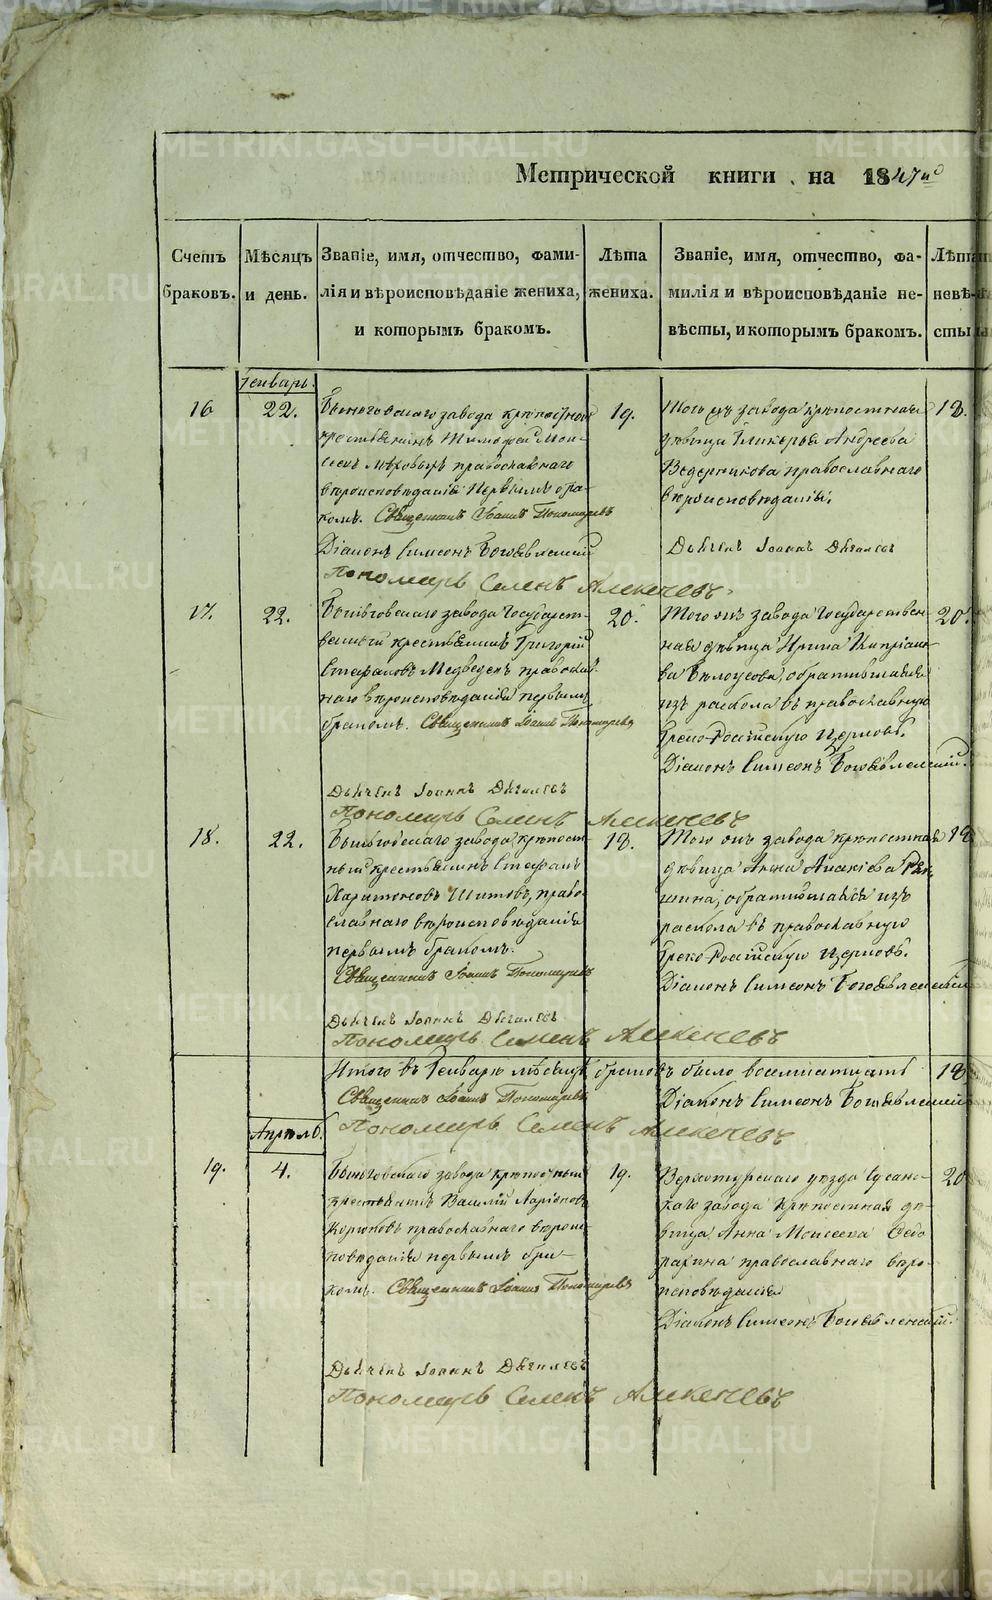 Метрической книги на 1847й
Счетъ браковъ.
Мѣсяцъ и день.
Званіе, имя, отчество, фами-
лія и вѣроисповѣданіе жениха,
и которымъ бракомъ.
Лѣта жениха.
Званіе, имя, отчество, фа-
милія и вѣроисповѣданіе не-
вѣсты, и которымъ бракомъ.
Лѣта невѣ-
сты
Генварь.
16
22.
Быньговскаго завода крѣпостной
крестьянинъ Тимофей Мои-
сеевъ православнаго
вѣроисповѣданія первымъ бра-
комъ. Священникъ Іоаннъ Пономаревъ
Діаконъ Симеонъ Богоявленскій
Пономарь Семенъ Алексеевъ
19.
Того жъ завода крѣпостная
дѣвица Гликерья Андреева
Ведерникова православнаго
вѣроисповѣданія.
Дьячекъ Іоаннъ Дягилевъ
18.
17.
22.
Быньговскаго завода Государст-
венный крестьянинъ Григорій
Стефановъ Медведевъ православ-
наго вѣроисповѣданія первымъ
бракомъ. Священникъ Іоаннъ Пономаревъ
Дьячекъ Іоаннъ Дягилевъ
Пономарь Семенъ Алексеевъ
20.
Того жъ завода Государствен-
ная дѣвица Ирина Кипріано-
ва Белоусова, обратившаяся
изъ раскола въ православную
Греко-Россійскую Церковь.
Діаконъ Симеонъ Богоявленскій.
20.
18.
22.
Быньговскаго завода крѣпост-
ный крестьянинъ Стефанъ
Харитоновъ Шитовъ, право-
славнаго вѣроисповѣданія
первымъ бракомъ.
Священникъ Іоаннъ Пономаревъ
Дьячекъ Іоаннъ Дягилевъ
Пономарь Семенъ Алексеевъ
18.
Того жъ завода крѣпостная
дѣвица Анна
обратившаяся изъ
раскола въ православную
Греко-Россійскую Церковь.
Діаконъ Симеонъ Богоявленскій
18
Итого въ Генварѣ мѣсяцѣ браковъ было восемнатцать 18
Священникъ Іоаннъ Пономаревъ
Діаконъ Симеонъ Богоявленскій
Пономарь Семенъ Алексеевъ
Апрель.
19.
4.
Быньговскаго завода крѣпостный
крестьянинъ Василій Ларіоновъ
Корюковъ православнаго вѣроис-
повѣданія первымъ бра-
комъ. Священникъ Іоаннъ Пономаревъ
Дьячекъ Іоаннъ Дягилевъ
Пономарь Семенъ Алексеевъ
19.
Верхотурскаго уѣзда Сусанс-
каго завода крѣпостная дѣ-
вица Анна Моисеева
православнаго вѣро-
исповѣданія
Діаконъ Симеонъ Богоявленскій.
20
METRIKI.GASO-URAL.RU